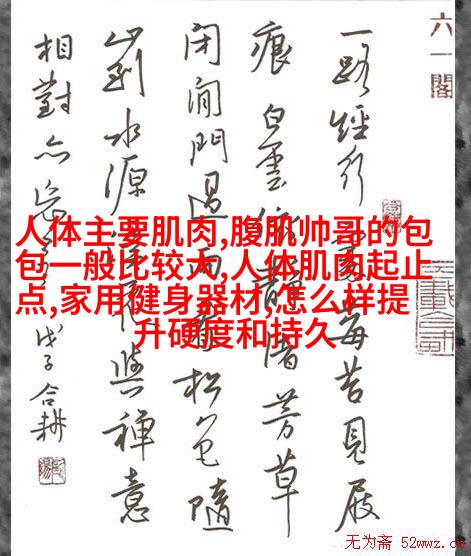 六一閣
一路經行莓苔見屐
痕白雲依靜渚芳草
閉閒門過雨看松色隨
山到水源與禪意
相對亦忘言戊子合耕
人体主要肌肉,腹肌帅哥的包
包一般比较大,人体肌肉起止
点,家用健身器材,怎么样提
升硬度和持久
无为斋 52wwz.c